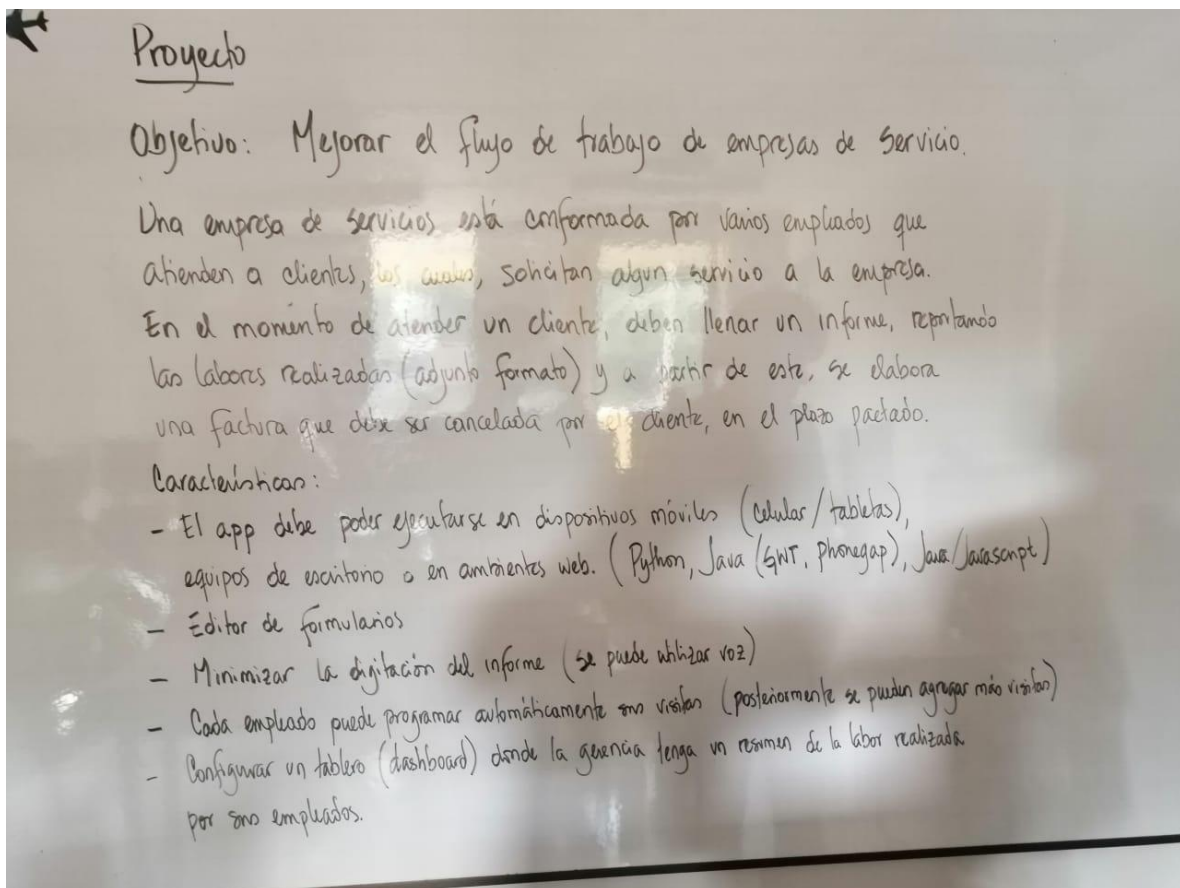 Proyecto
Objetivo: Mejorar el flujo de trabajo de empresas de servicio.
Una empresa de servicios está conformada por varios empleados que
atienden a clientes, los cuales, solicitan algun servicio a la empresa.
En el momento de atender un cliente, deben llenar un informe, reportando
las labores realizadas (adjunto formato) y a partir de este, se elabora
una factura que debe ser cancelada por el cliente, en el plazo pactado.
Características:
- El app debe poder ejecutarse en dispositivos móviles (celular/tabletas),
equipos de escritorio o en ambientes web. (Python, Java (GWT, Phonegap), Java/Javascript)
- Editor de formularios
- Minimizar la digitación del informe (se puede utilizar voz)
- Cada empleado puede programar automáticamente sus visitas (posteriormente se pueden agregar más visitas)
- Configurar un tablero (dashboard) donde la gerencia tenga un resumen de la labor realizada
por sus empleados.